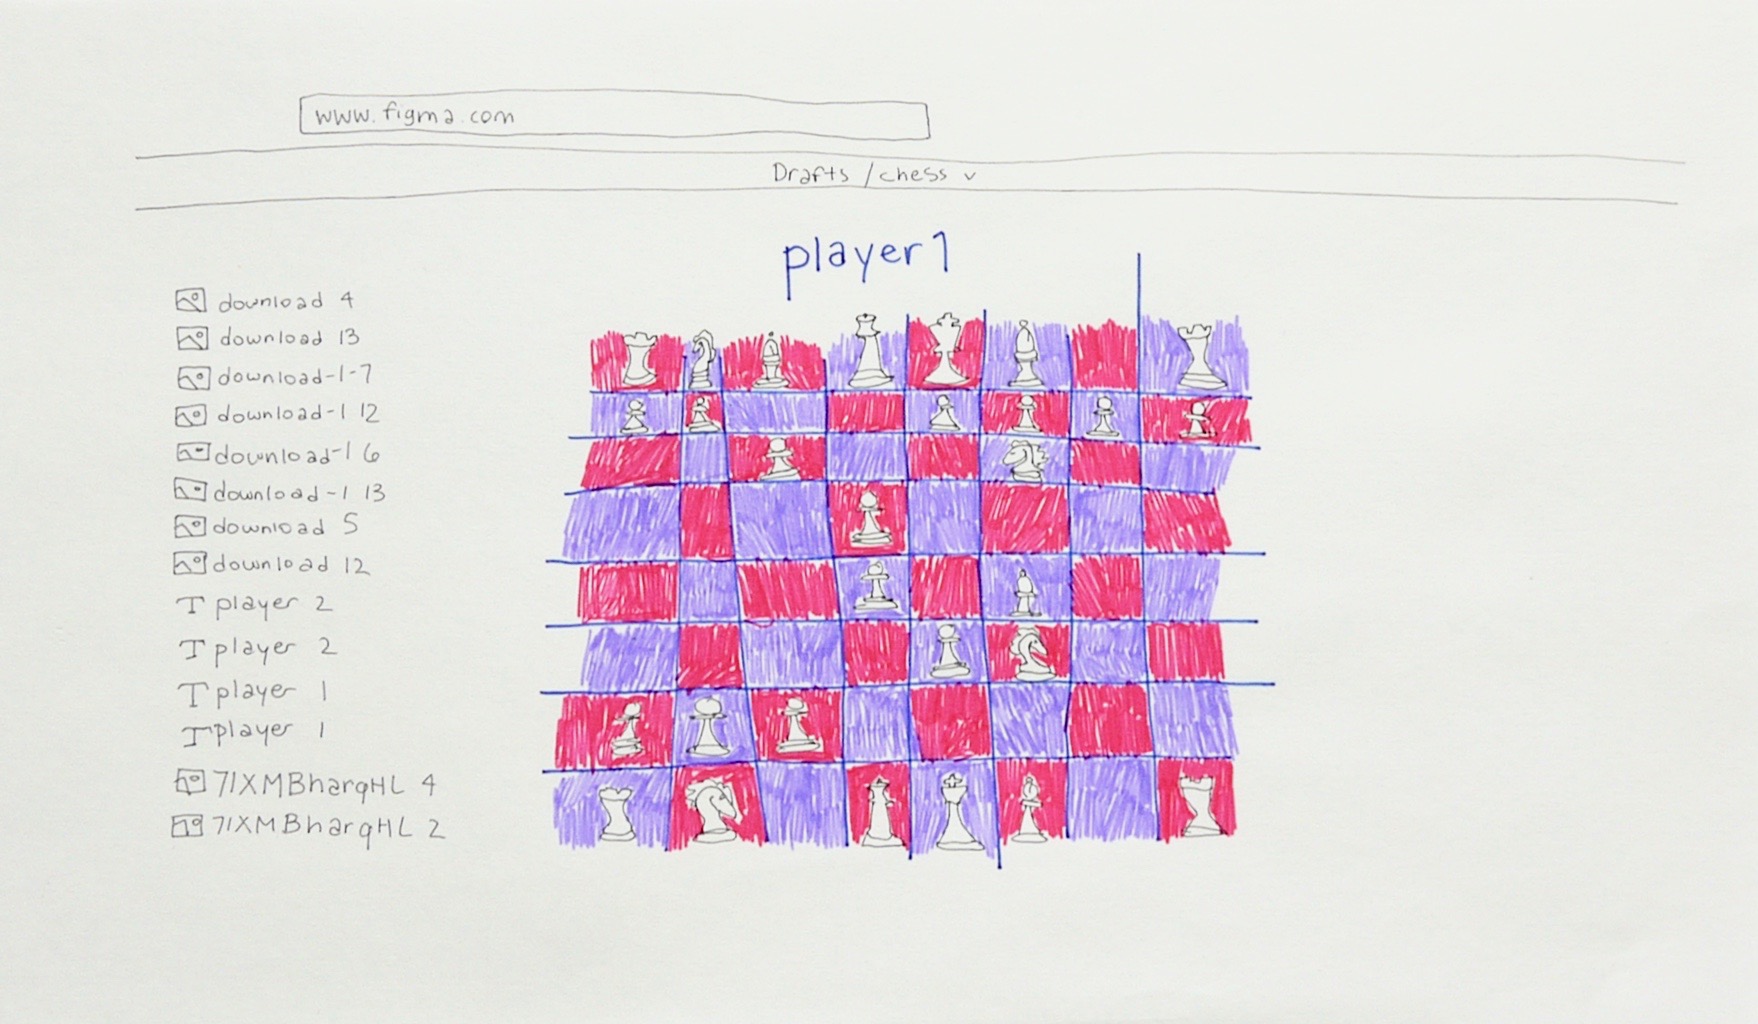 www.figma.com
Drafts /chess v
player 1
download 4
download 13
download-1-7
download-1 12
download-1 6
download-1 13
download 5
download 12
T player 2
T player 2
T player 1
T player 1
71XMBharqHL 4
71XMBharqHL 2